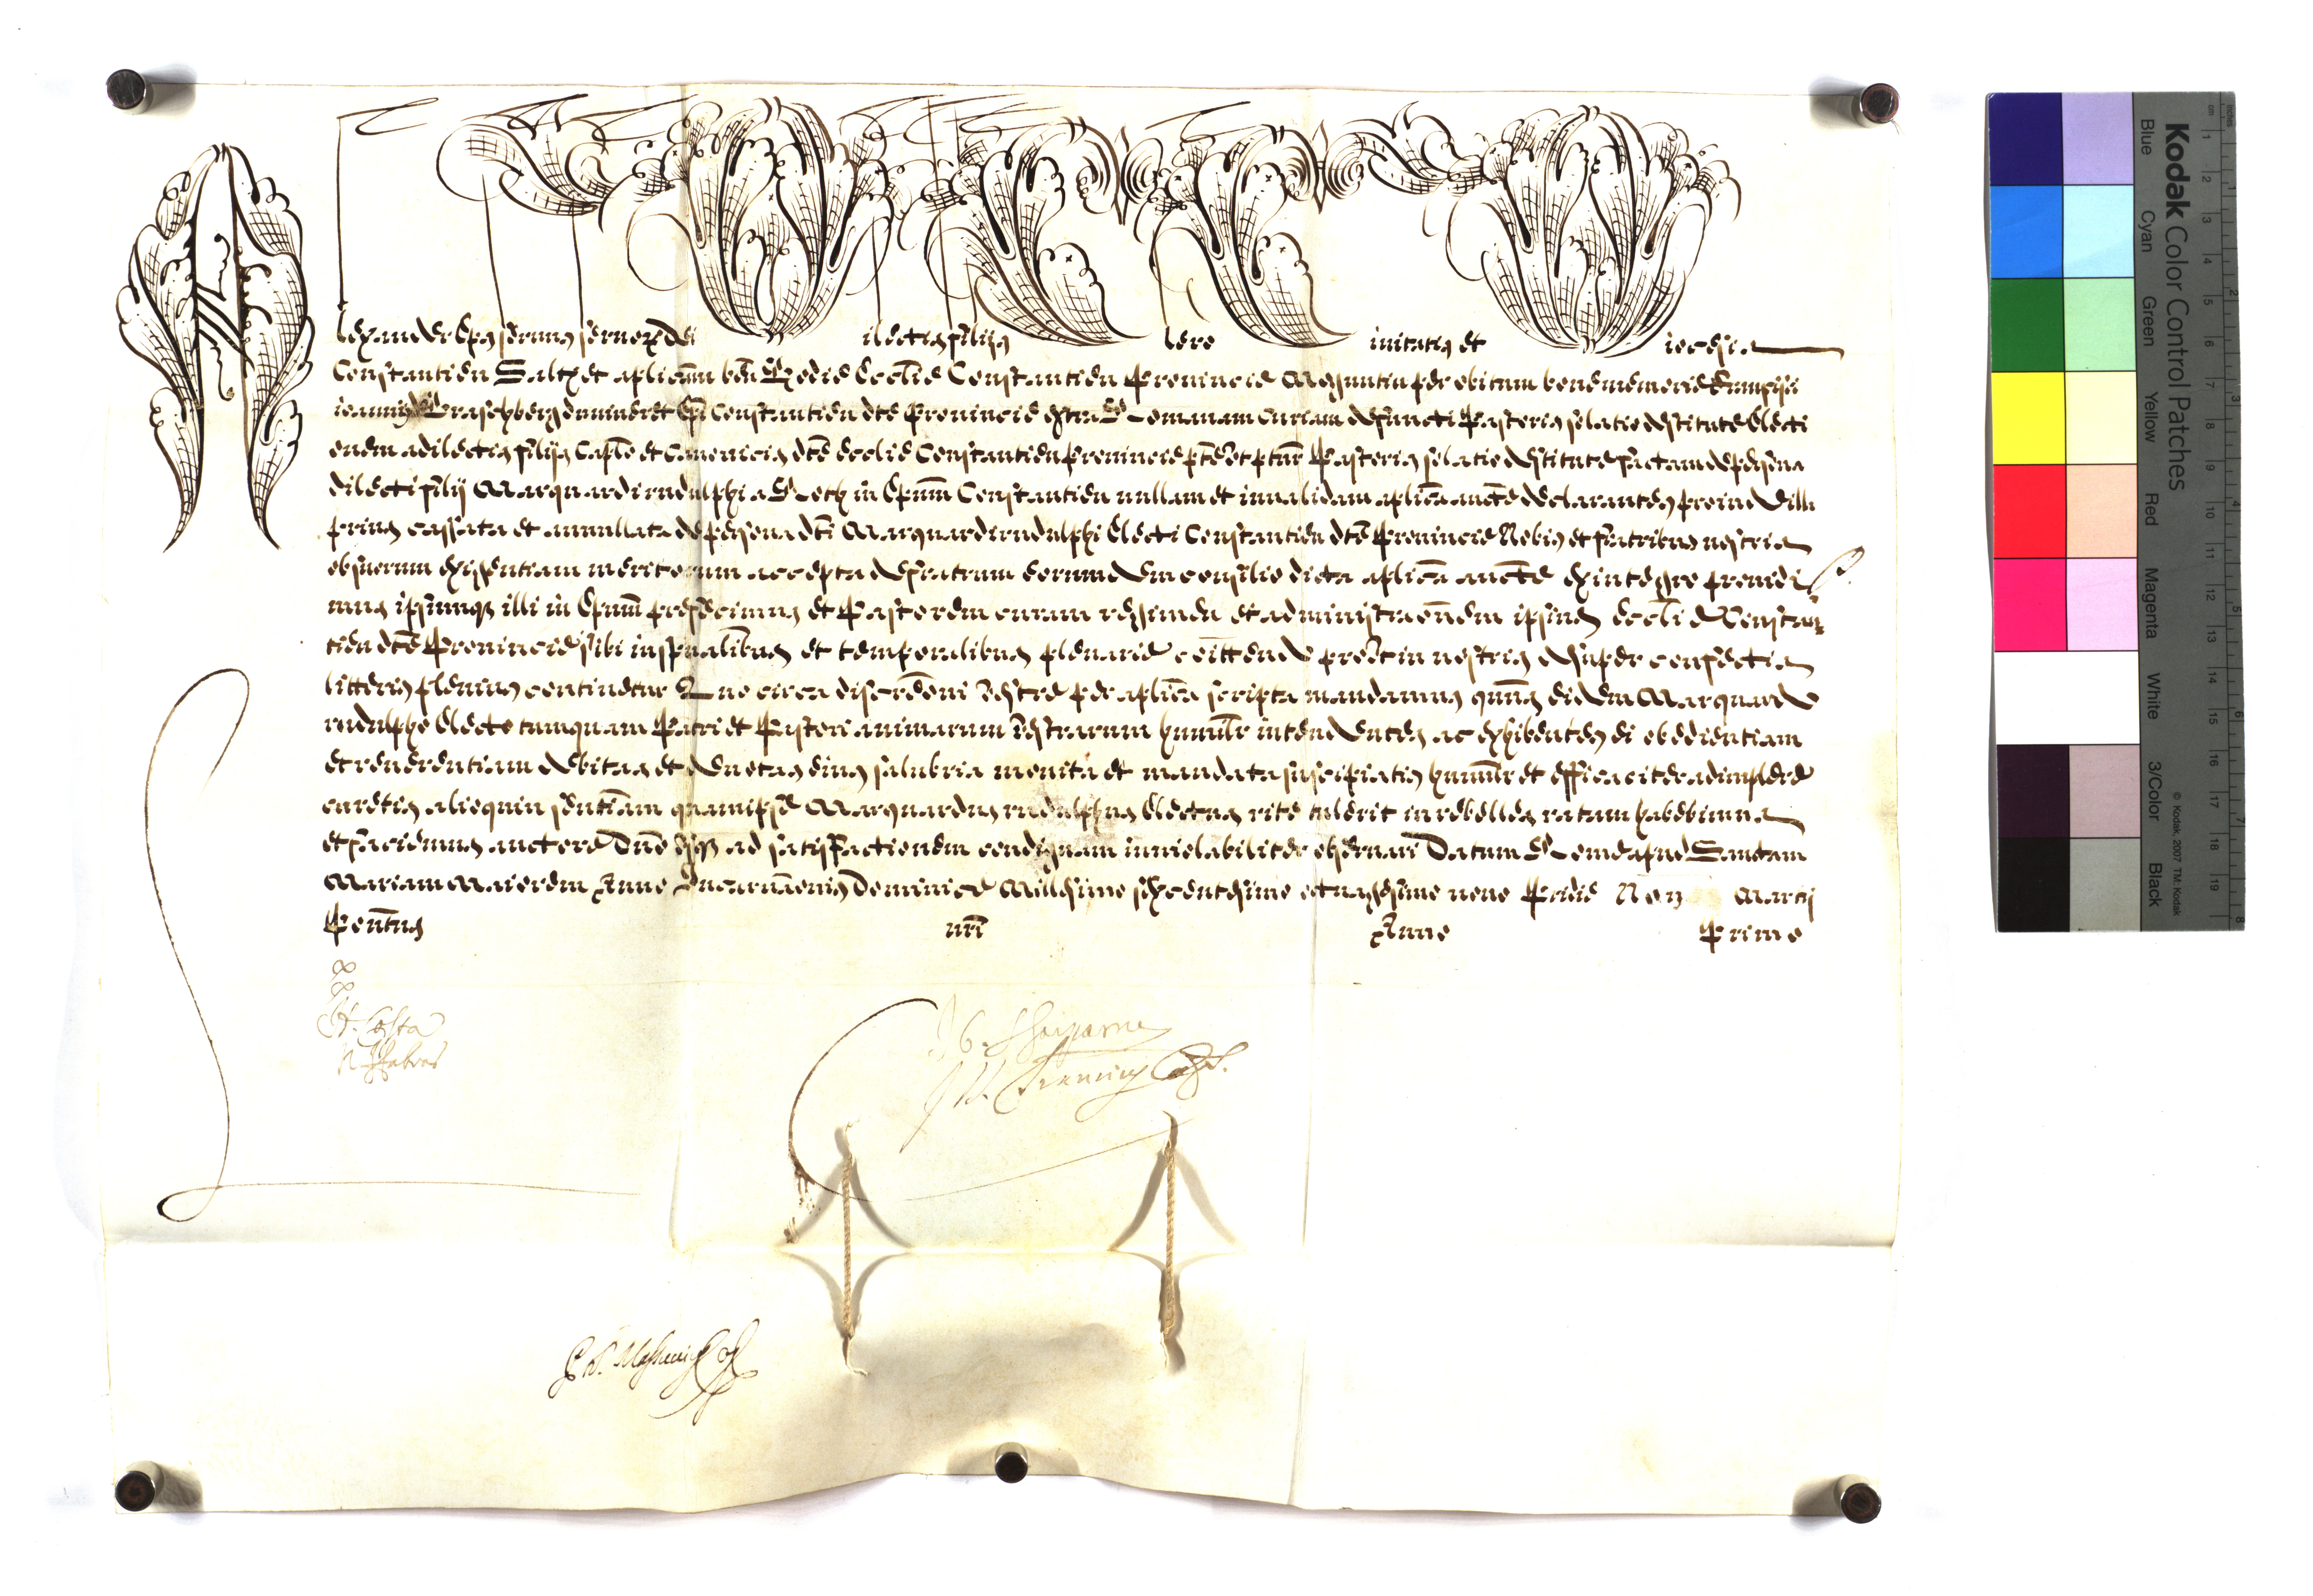 Alexander Eps seruus seruor̃ Dei Dilectis filijs Clero Ciuitatis et Diocesis
Constantien Saltẽ et aplicam ben Hodie Ecclie Constantien Prouincie Maguntin per obitum bone memorie Francisci
ioannis Praschberg dum uiueret Epi Constantien dte Prouincie extra Romanam curiam defuncti Pastoris solatio destitute Electi
onem a dilectis filijs Caplo et Canonicis dte Ecclie Constantien Prouincie Pastoris solatio destitute factam de persona
dilecti filij Marquardi rudulphi a Roth in Epum Constantien nullam et inualidam aplica aucte declarantes proinde illa
prius cassata et annullata de persona dti Marquardi rudulphi Electi Constantien dte Prouincie Nobis et fratribus nostris
ob suorum exigentiam meritorum accepta de fratrum eorumdem consilio dicta aplica aucte ex integro prouidi
mus ipsumq illi in Epum prefecimus et Pastorem curam regimen et administraonem ipsius Ecclie Constan
tien dte Prouincie sibi in spualibus et temporalibus plenarie coittendo prout in nostris desuper confectis
litteris plenius continetur Quo circa discreoni vestre per aplica scripta mandamus quatus eidem Marquardo
rudulpho Electo tamquam Patri et Pastori animarum vestrarum humilr intendentes ac exhibentes ei obedientiam
et reuerentiam debitas et deuotas eius salubria monita et mandata suscipiatis humilr et efficaciter adimplere
curetis alioquin sentiam quam ipse Marquardus rudulphus Electus rite tulerit in rebelles ratam habebimus
et faciemus auctore Dno usq ad satisfactionem condignam inuiolabiliter obseruari Datum Rome apud Sanctam
Mariam Maiorem Anno Incarnaonis Dominice Millesimo sexcentesimo octuagesimo nono Pridie Non Martij
Pontus nri Anno Primo
A. Costa